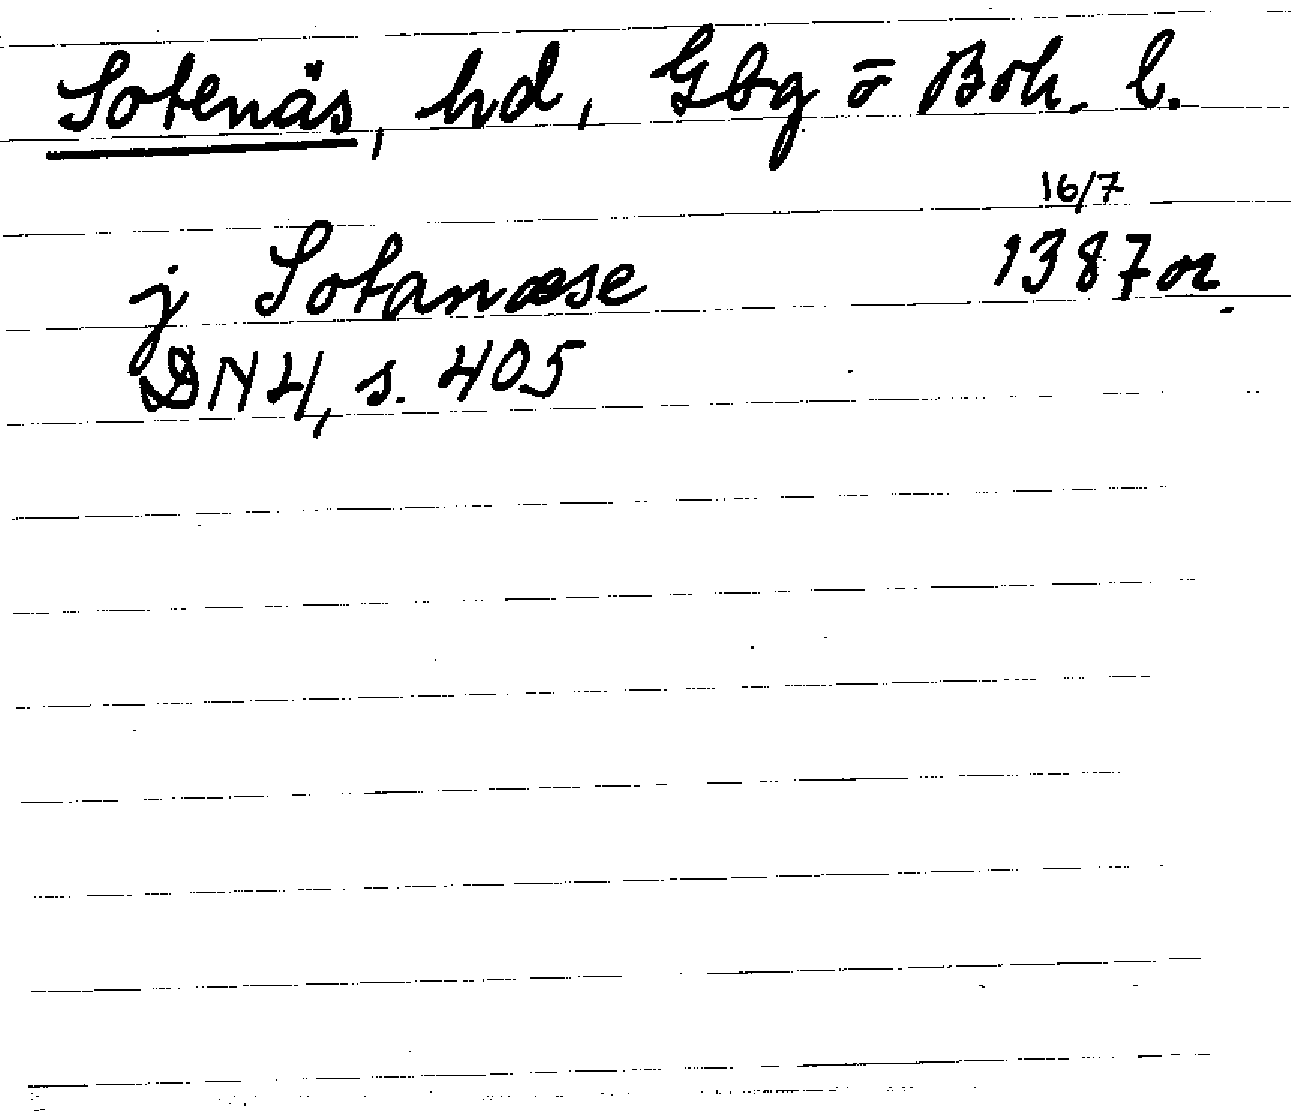 Sotenäs, hd, Gbg ō Boh. l.
16/7
j Sotanæse 1387 or.
DN 4, s. 405